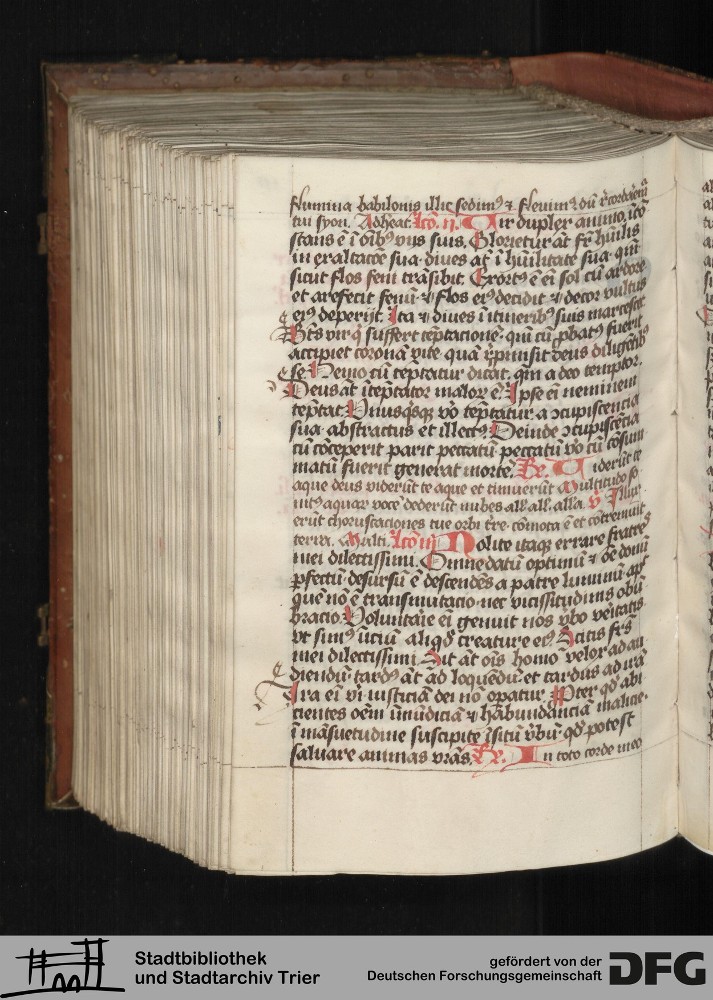 flumina babilonis illic sedimꝰ ⁊ fleuimꝰ dū recordarem̄
tui syon. Adheat. lcō. ij. Vir duplex animo. īcō
stans ē ī oībꝰ vijs suis. Glorietur āt fr̄ hūilis
in exaltacōe sua. diues āt ī hūilitate sua. qm̄
sicut flos feni trāsibit. Exortꝰ ē eī sol cū ardore
et arefecit fenū ⁊ flos eiꝰ decidit. ⁊ decor vultus
eiꝰ deperijt. Ita ⁊ diues ī itineribꝰ suis marcescet
Bt̄s vir q̄ suffert tēptacionē. qm̄ cū ꝓbatꝰ fuerit
accipiet coronā vite quā repromisit deus diligētibꝰ
se. Nemo cū tēptatur dicat. qm̄ a deo temptor.
Deus āt ītēptator malor ē. Ipse eī neminem
tēptat. Vnusqsqꝫ vo tēptatur a ↄcupiscencia
sua abstractus et illectꝰ. Deinde ↄcupiscēcia
cū cōceperit parit peccatū. peccatū vo cū cōsum
matū fuerit generat mortē. Re. Viderūt te
aque deus viderūt te aque et timuerūt Multitudo so
nitꝰ aquar vocē dederūt nubes all̄. all̄. alla. v Illux
erūt choruscaciones tue orbi tr̄e. cōmota ē et cōtremuit
terra. Multi. lcō iij Nolite itaqꝫ errare fratres
mei dilectissimi. Omne datū optimū ⁊ oē donū
ꝑfectū. desursū ē descendēs a patre luminū. apᵈ
quē nō ē transmutacio. nec vicissitudinis obū
bracio. Voluntarie eī genuit nos vbo veritatis
vt simꝰ iniciū aliqᵈ creature eiꝰ Scitis frs̄
mei dilectissimi. Sit āt oīs homo velox ad au
diendū. tardꝰ āt ad loquēdū. et tardus ad irā
Ira eī viri iusticiā dei nō operatur. Propter qᵈ abi
cientes oēm īmūdiciā ⁊ habundānciā malicie.
ī māsuetudine suscipite īsitū vbū. qᵈ potest
saluare animas vr̄as. Re. In toto corde meo
Stadtbibliothek
und Stadtarchiv Trier
gefördert von der
Deutschen Forschungsgemeinschaft
DFG